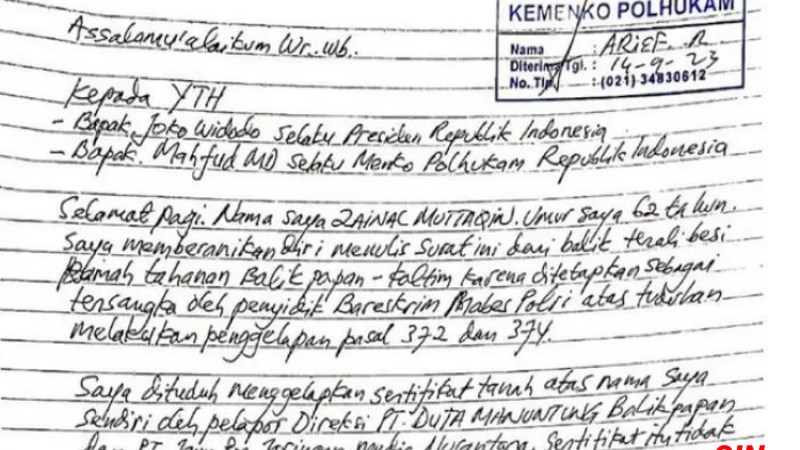 KEMENKO POLHUKAM
Nama : ARIEF. R
Diterima Tgl. : 14-9-23
No. Tlp. : (021) 34830612
Assalamu'alaikum Wr. Wb.
Kepada YTH
- Bapak Joko Widodo selaku Presiden Republik Indonesia
- Bapak. Mahfud MD selaku Menko Polhukam Republik Indonesia
Selamat pagi. Nama saya ZAINAL MUTTAQIN. Umur saya 62 tahun.
Saya memberanikan diri menulis surat ini dari balik terali besi
Rumah tahanan Balikpapan - Kaltim karena ditetapkan sebagai
tersangka oleh penyidik Bareskrim Mabes Polri atas tuduhan
melakukan penggelapan pasal 372 dan 374.
Saya dituduh menggelapkan sertifikat tanah atas nama saya
sendiri oleh pelapor Direksi PT. DUTA MANUNTUNG Balikpapan
dan PT. Jawa Pos Jaringan Media Nusantara. Sertifikat itu tidak